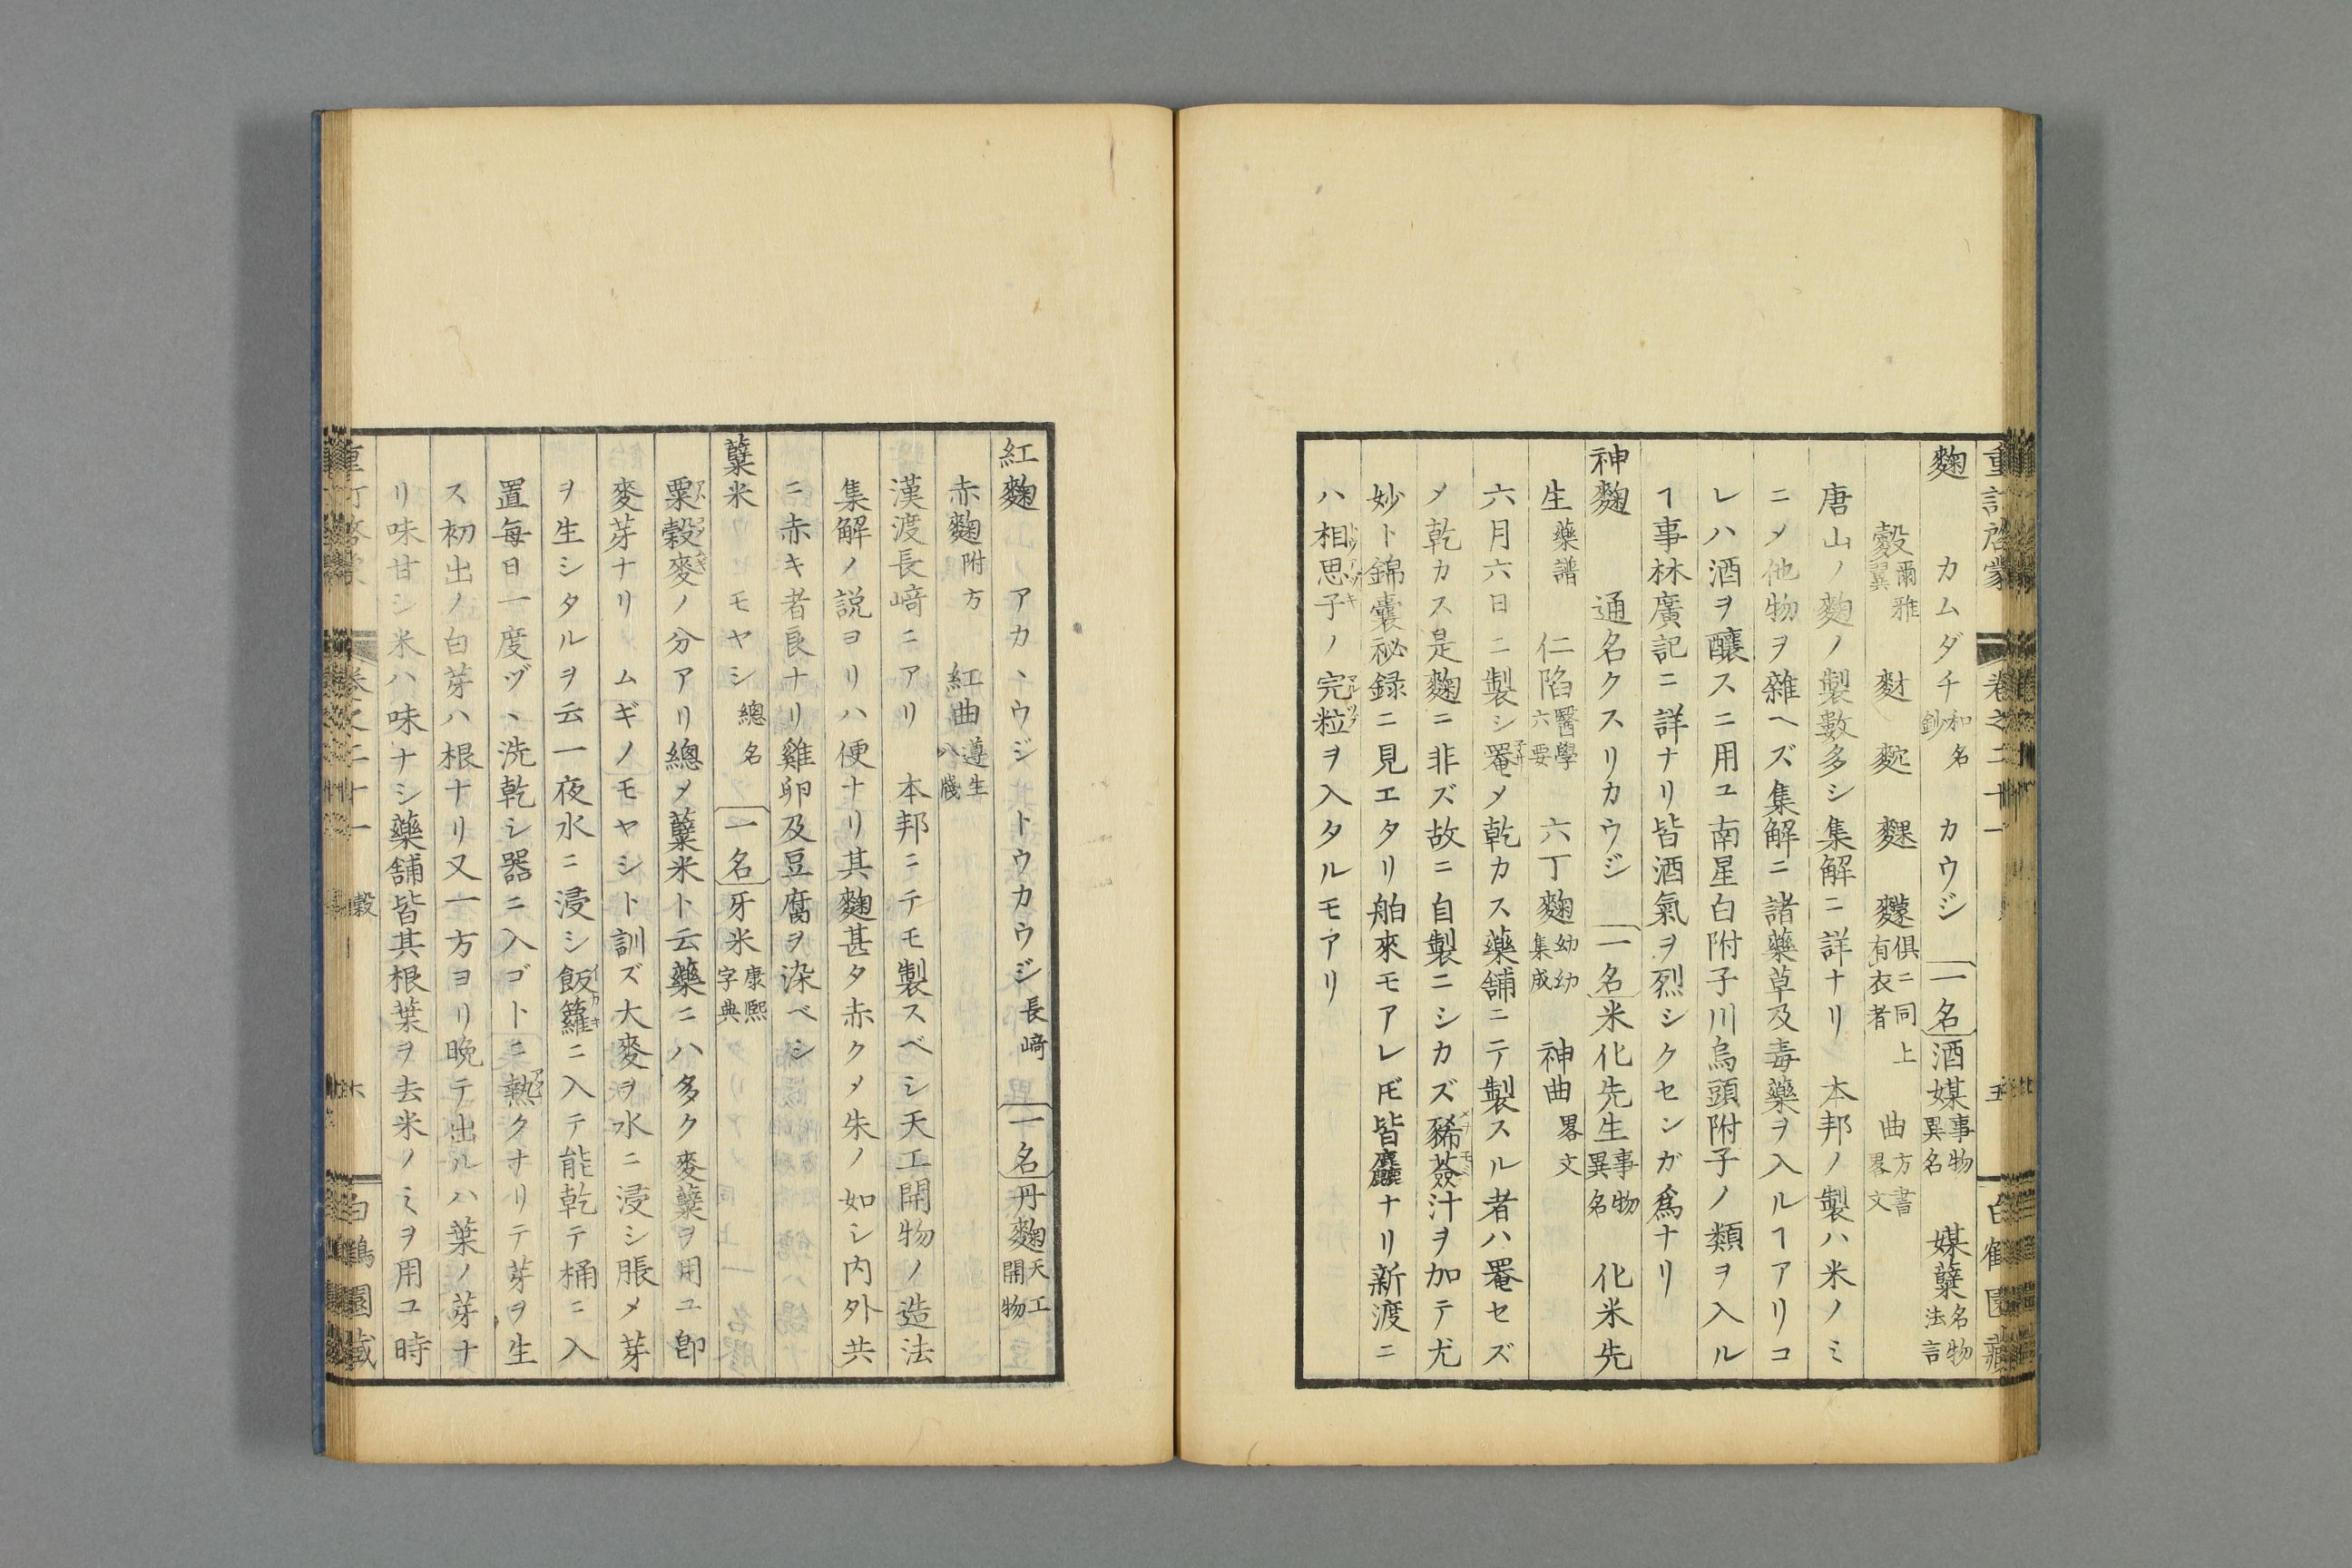 重訂啓蒙 卷之二十一 五 白鶴園藏
麹 カムダチ和名鈔 カウジ 一名 酒媒事物異名 媒糵名物法言
糓爾雅翼 䴭 䴱 䴹 䴿俱ニ同上有衣者 曲方書畧文
唐山ノ麴ノ製數多シ集解ニ詳ナリ 本邦ノ製ハ米ノミ
ニメ他物ヲ雜ヘズ集解ニ諸藥草及毒藥ヲ入ルヿアリコ
レハ酒ヲ釀スニ用ユ南星白附子川烏頭附子ノ類ヲ入ル
ヿ事林廣記ニ詳ナリ皆酒氣ヲ烈シクセンガ爲ナリ
神麴 通名クスリカウジ 一名 米化先生事物異名 化米先
生藥譜 仁陷醫學六要 六丁麴幼幼集成 神曲畧文
六月六日ニ製シ罨メ乾カス藥舖ニテ製スル者ハ罨セズ
メ乾カス是麴ニ非ズ故ニ自製ニシカズ豨薟汁ヲ加テ尤
妙ト錦囊秘録ニ見エタリ舶來モアレ𪜈皆麤ナリ新渡ニ
ハ相思子ノ完粒ヲ入タルモアリ
紅麴 アカヽウジ トウカウジ長﨑 一名 丹麴天工開物
赤麴附方 紅曲遵生八牋
漢渡長﨑ニアリ 本邦ニテモ製スベシ天工開物ノ造法
集解ノ説ヨリハ便ナリ其麴甚タ赤クメ朱ノ如シ内外共
ニ赤キ者良ナリ雞卵及豆腐ヲ染ベシ
糵米 モヤシ總名 一名 牙米康熙字典
粟穀麥ノ分アリ總メ糵米ト云藥ニハ多ク麥糵ヲ用ユ卽
麥芽ナリ ムギノモヤシト訓ズ大麥ヲ水ニ浸シ脹メ芽
ヲ生シタルヲ云一夜水ニ浸シ飯籮ニ入テ能乾テ桶ニ入
置每日一度ヅヽ洗乾シ器ニ入ゴトニ熱クナリテ芽ヲ生
ス初出ノ白芽ハ根ナリ又一方ヨリ晩テ出ルハ葉ノ芽ナ
リ味甘シ米ハ味ナシ藥舖皆其根葉ヲ去米ノミヲ用ユ時
重訂啓蒙 卷之二十一 穀 六 白鶴園藏